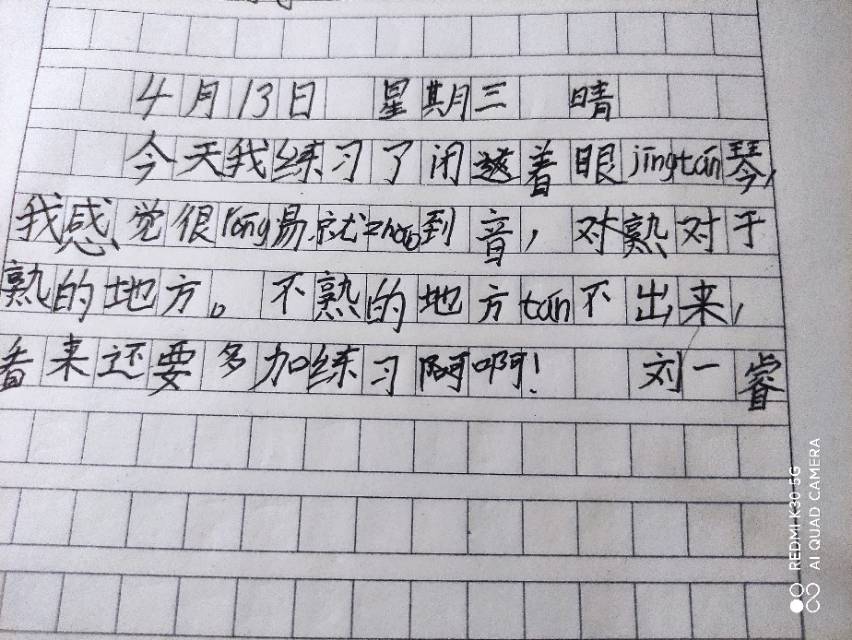 4月13日 星期三 晴
今天我练习了闭着眼jīngtán琴,
我感觉很róng易.就zhao到音,对熟对于
熟的地方。不熟的地方tán不出来,
看来还要多加练习啊啊! 刘一睿
REDMI K30 5G
AI QUAD CAMERA